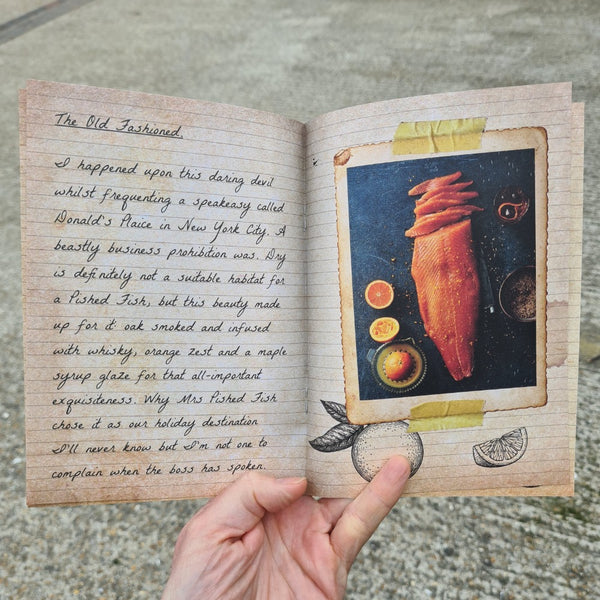 The Old Fashioned.
I happened upon this daring devil
whilst frequenting a speakeasy called
Donald's Plaice in New York City. A
beastly business prohibition was. Dry
is definitely not a suitable habitat for
a Pished Fish, but this beauty made
up for it oak smoked and infused
with whisky, orange zest and a maple
syrup glaze for that all-important
exquisiteness. Why Mrs Pished Fish
chose it as our holiday destination
I'll never know but I'm not one to
complain when the boss has spoken.